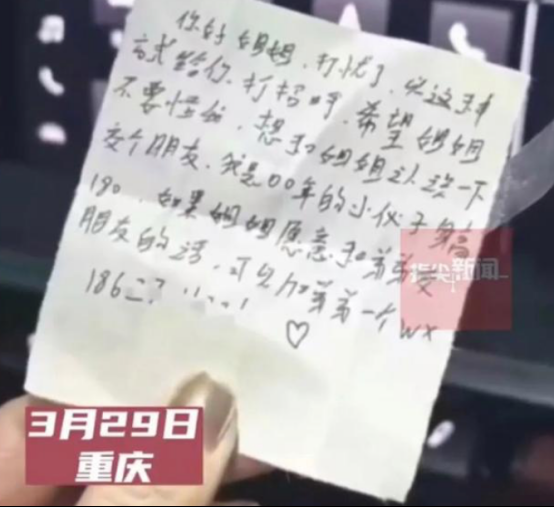 你好姐姐，打扰了，以这种
方式给你打招呼，希望姐姐
不要怪怪，想和姐姐认识一下
交个朋友，我是00年的小伙子身高
180，如果姐姐愿意和弟弟交
朋友的话，可以加弟弟一个WX
186
指尖新闻
3月29日
重庆